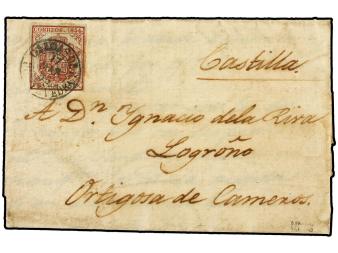 CORREOS. 1854
Castilla.
A Dn. Ygnacio dela Riva
Logroño
Ortigosa de Cameros.